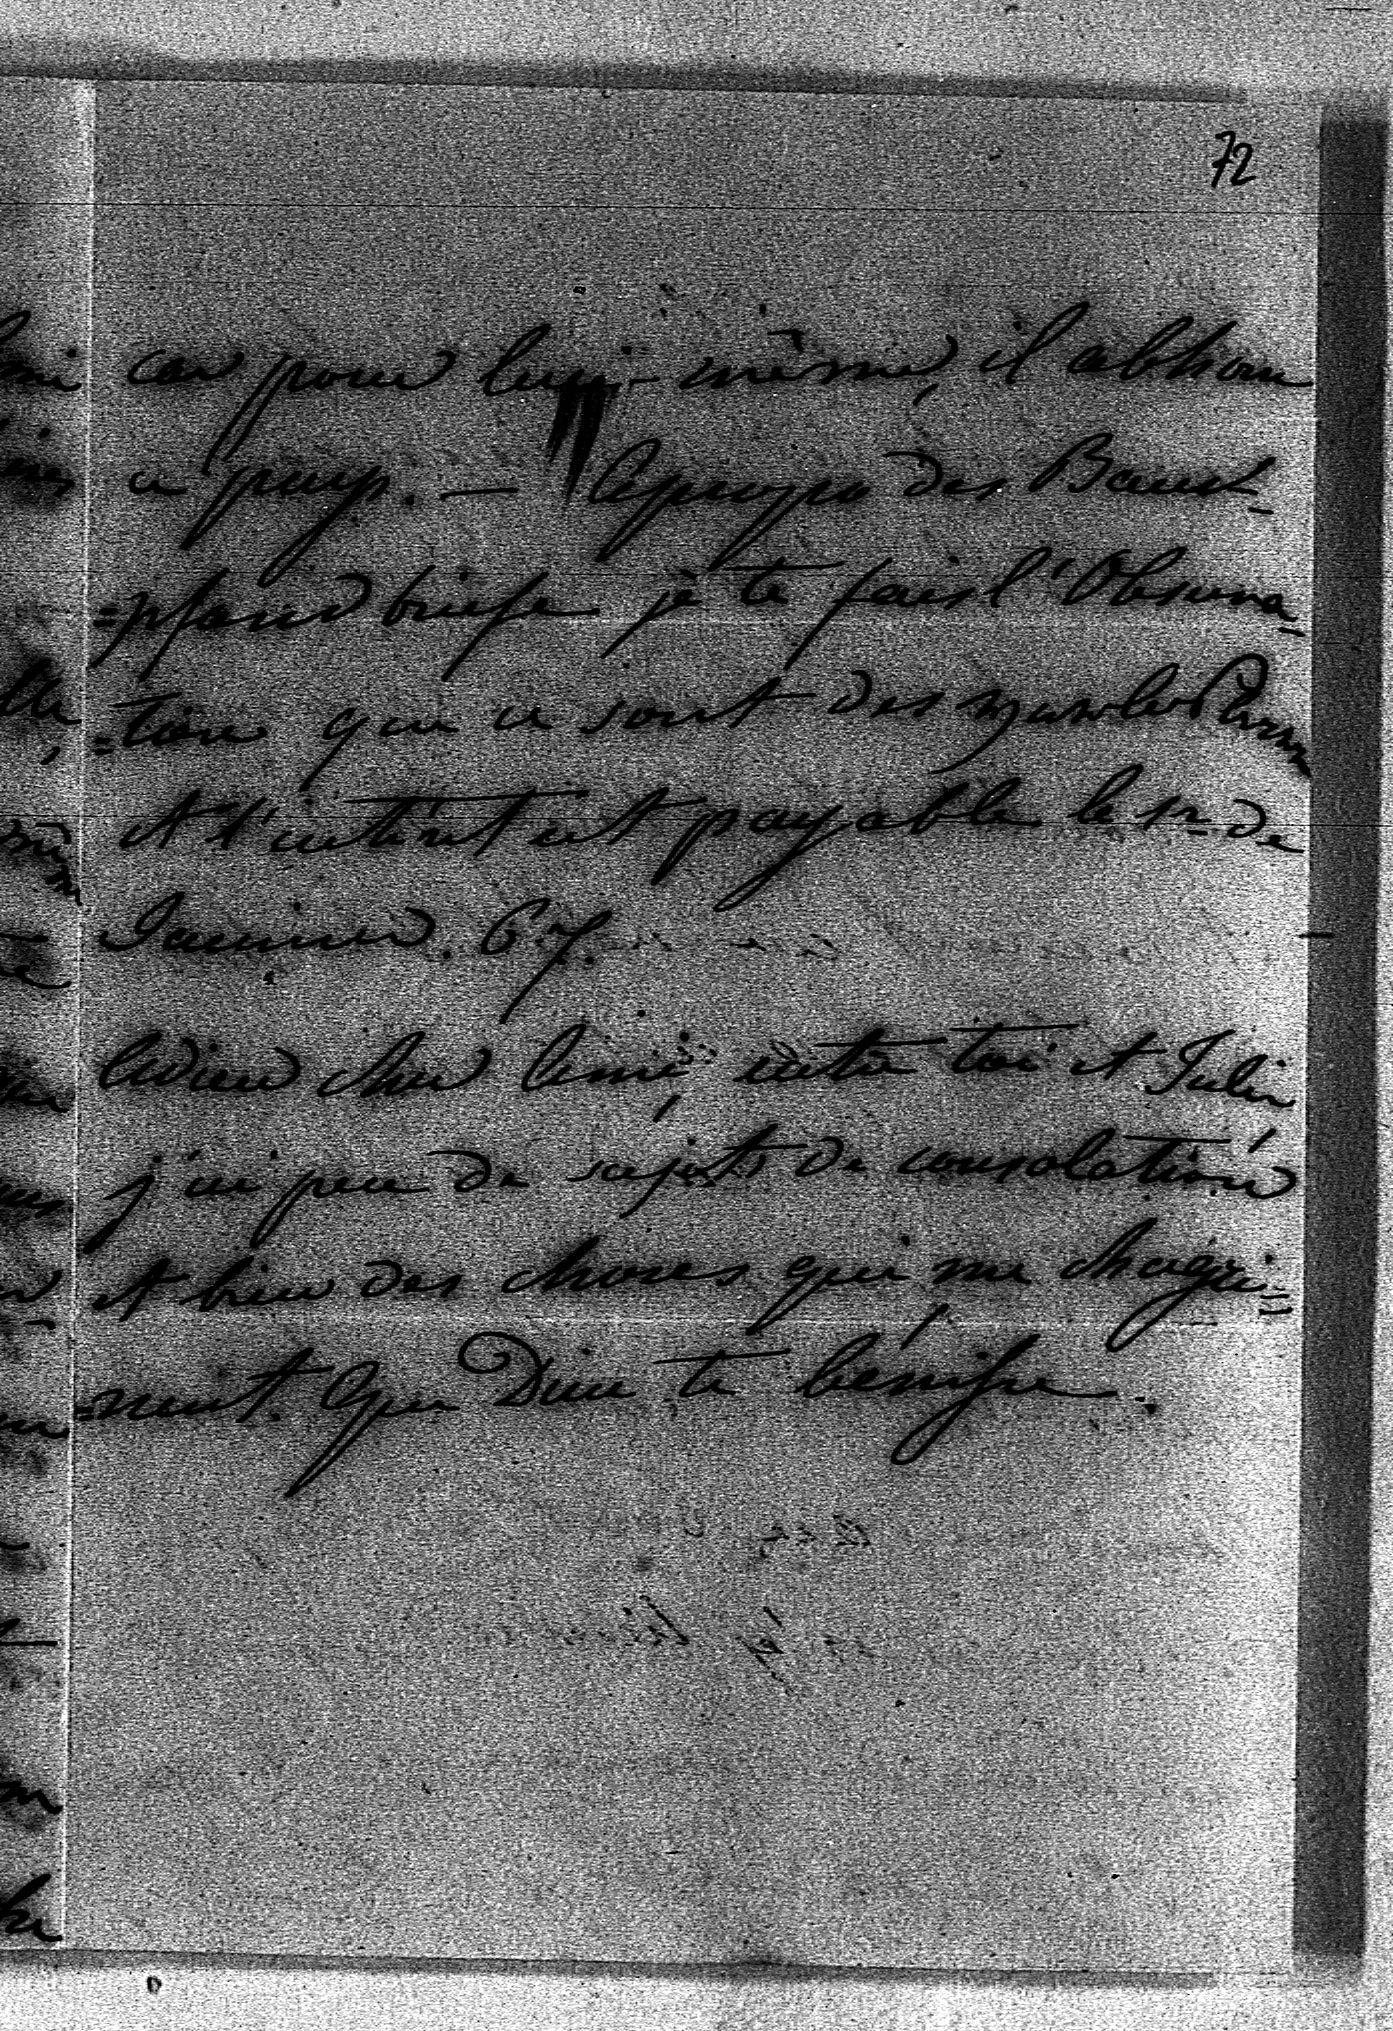 72
car pour lui-même, il abhore
ce pays. — Apropos des Bank-
=pfandbriefe je te fais l'Observa=
=tion que ce sont des
et l'intérêt est payable le 1r de
Janvier 67.
Adieu cher Ami, entre toi et Julie
j'ai peu de sujets de consolation
et bien des choses qui me chagri=
=nent. Que Dieu te bénisse.